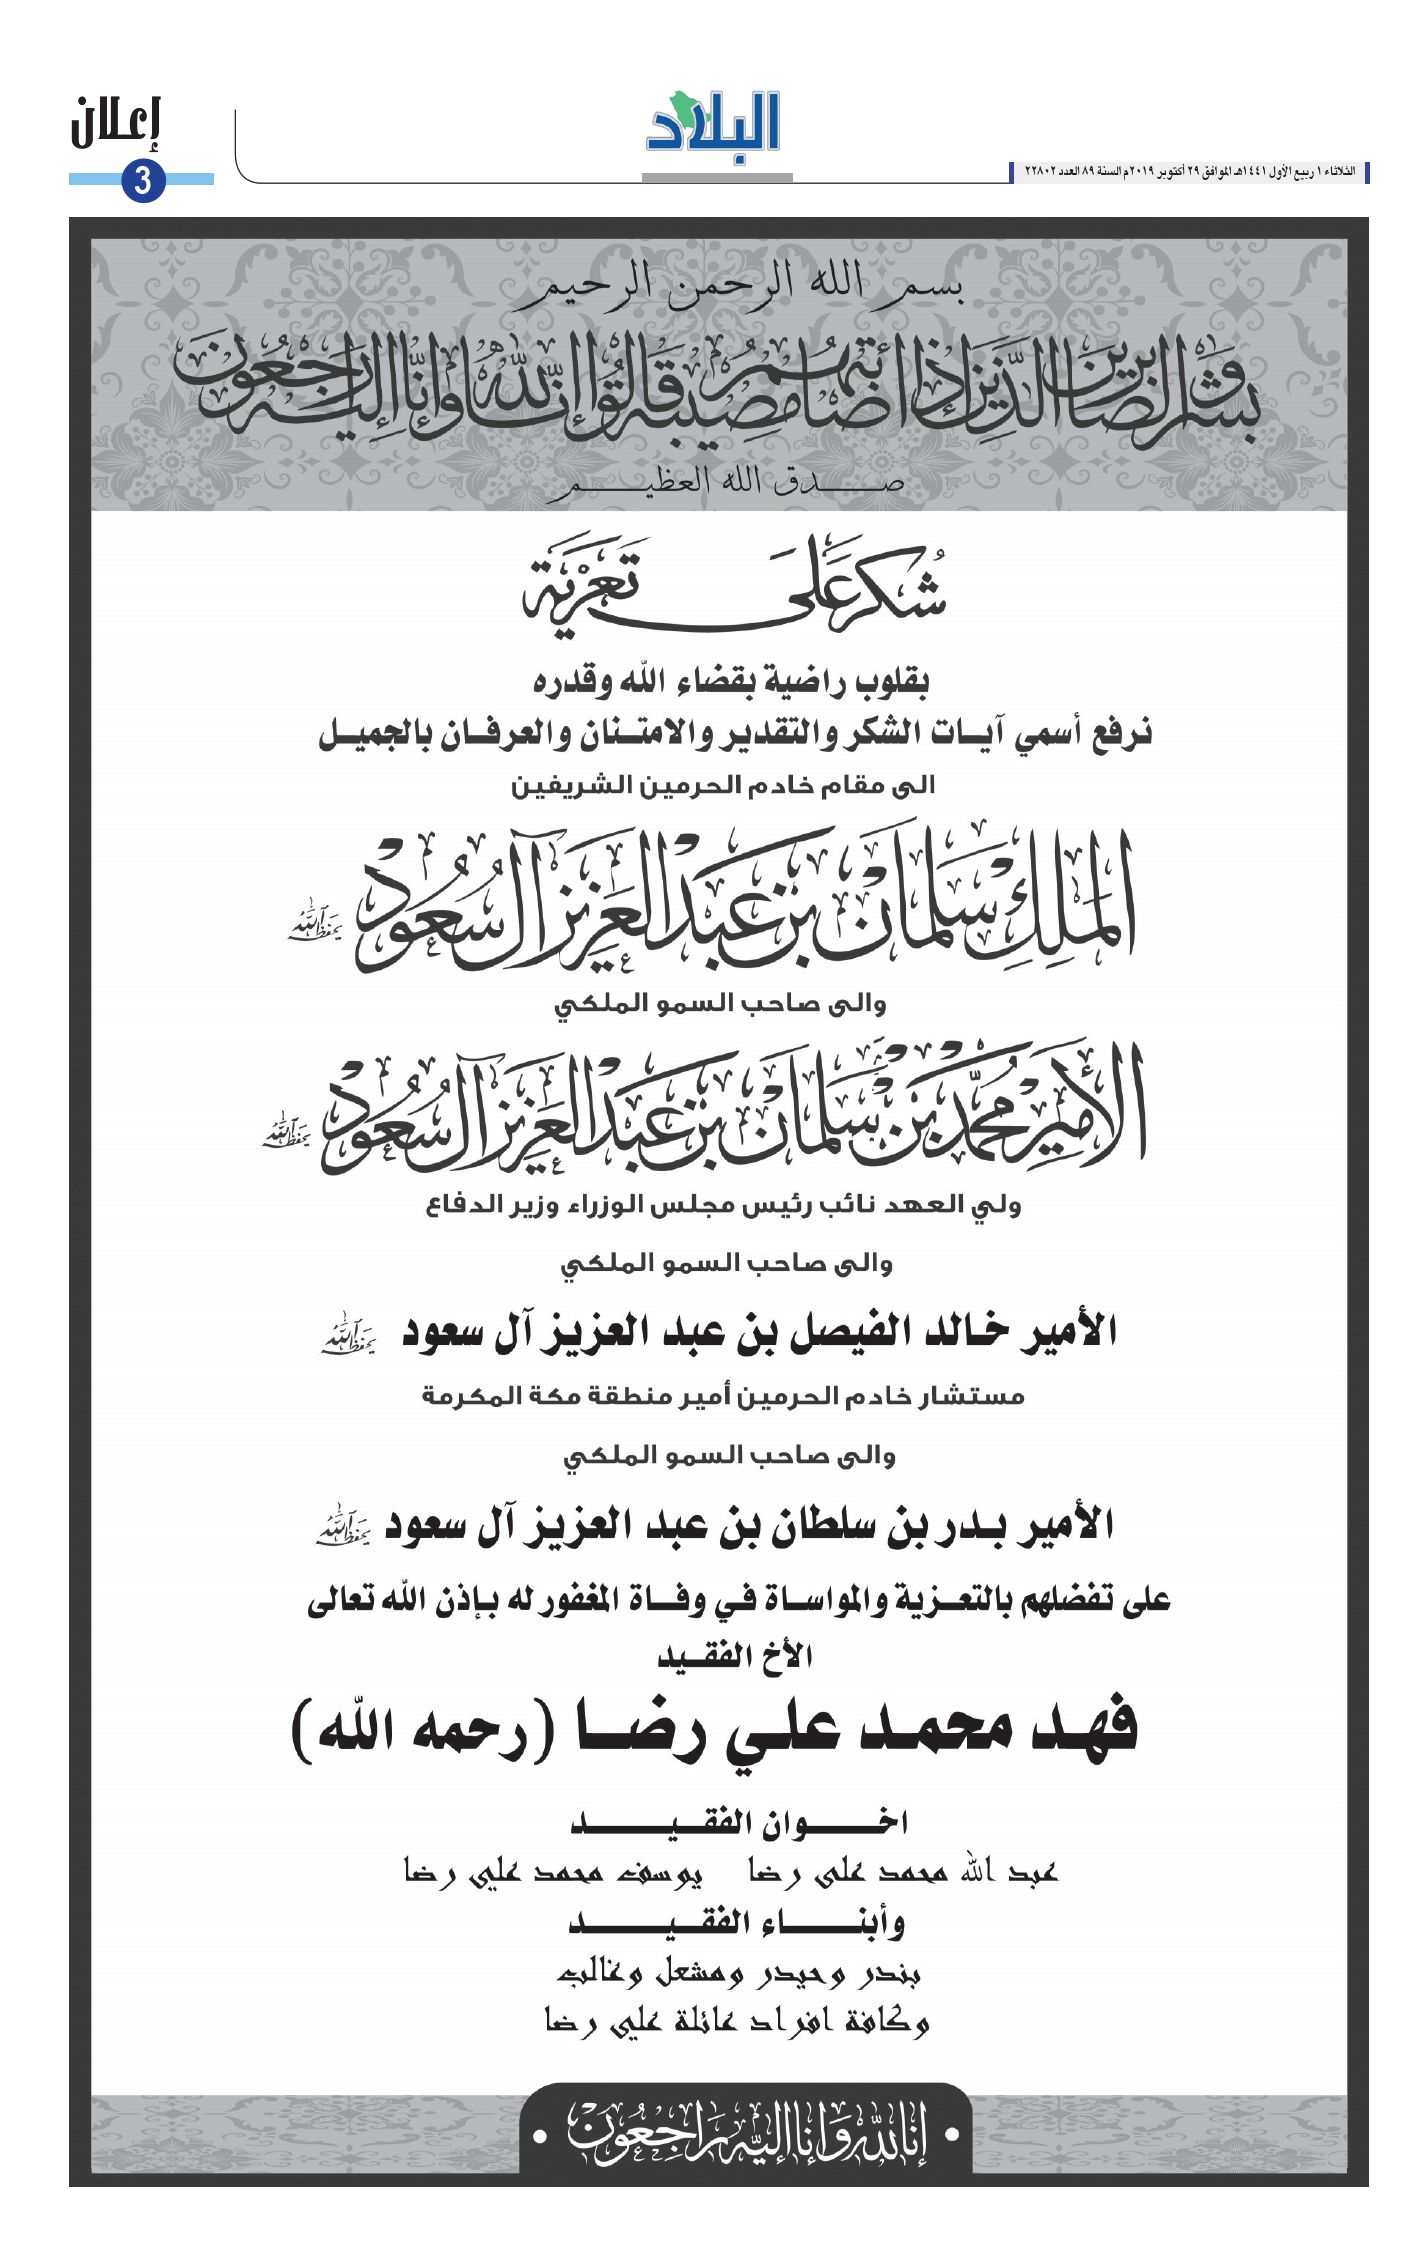 إعلان
3
البلاد
الثلاثاء ١ ربيع الأول ١٤٤١هـ الموافق ٢٩ أكتوبر ٢٠١٩م السنة ٨٩ العدد ٢٢٨٠٢
بسم الله الرحمن الرحيم
وبشر الصابرين الذين إذا أصابتهم مصيبة قالوا إنا لله وإنا إليه راجعون
صدق الله العظيم
شكر على تعزية
بقلوب راضية بقضاء الله وقدره
نرفع أسمي آيات الشكر والتقدير والامتنان والعرفان بالجميل
الى مقام خادم الحرمين الشريفين
الملك سلمان بن عبد العزيز آل سعود يحفظه الله
والى صاحب السمو الملكي
الأمير محمد بن سلمان بن عبد العزيز آل سعود يحفظه الله
ولي العهد نائب رئيس مجلس الوزراء وزير الدفاع
والى صاحب السمو الملكي
الأمير خالد الفيصل بن عبد العزيز آل سعود يحفظه الله
مستشار خادم الحرمين أمير منطقة مكة المكرمة
والى صاحب السمو الملكي
الأمير بدر بن سلطان بن عبد العزيز آل سعود يحفظه الله
على تفضلهم بالتعزية والمواساة في وفاة المغفور له بإذن الله تعالى
الأخ الفقيد
فهد محمد علي رضا (رحمه الله)
اخوان الفقيد
عبد الله محمد على رضا يوسف محمد علي رضا
وأبناء الفقيد
بندر وحيدر ومشعل وغالب
وكافة افراد عائلة علي رضا
إنا لله وإنا إليه راجعون